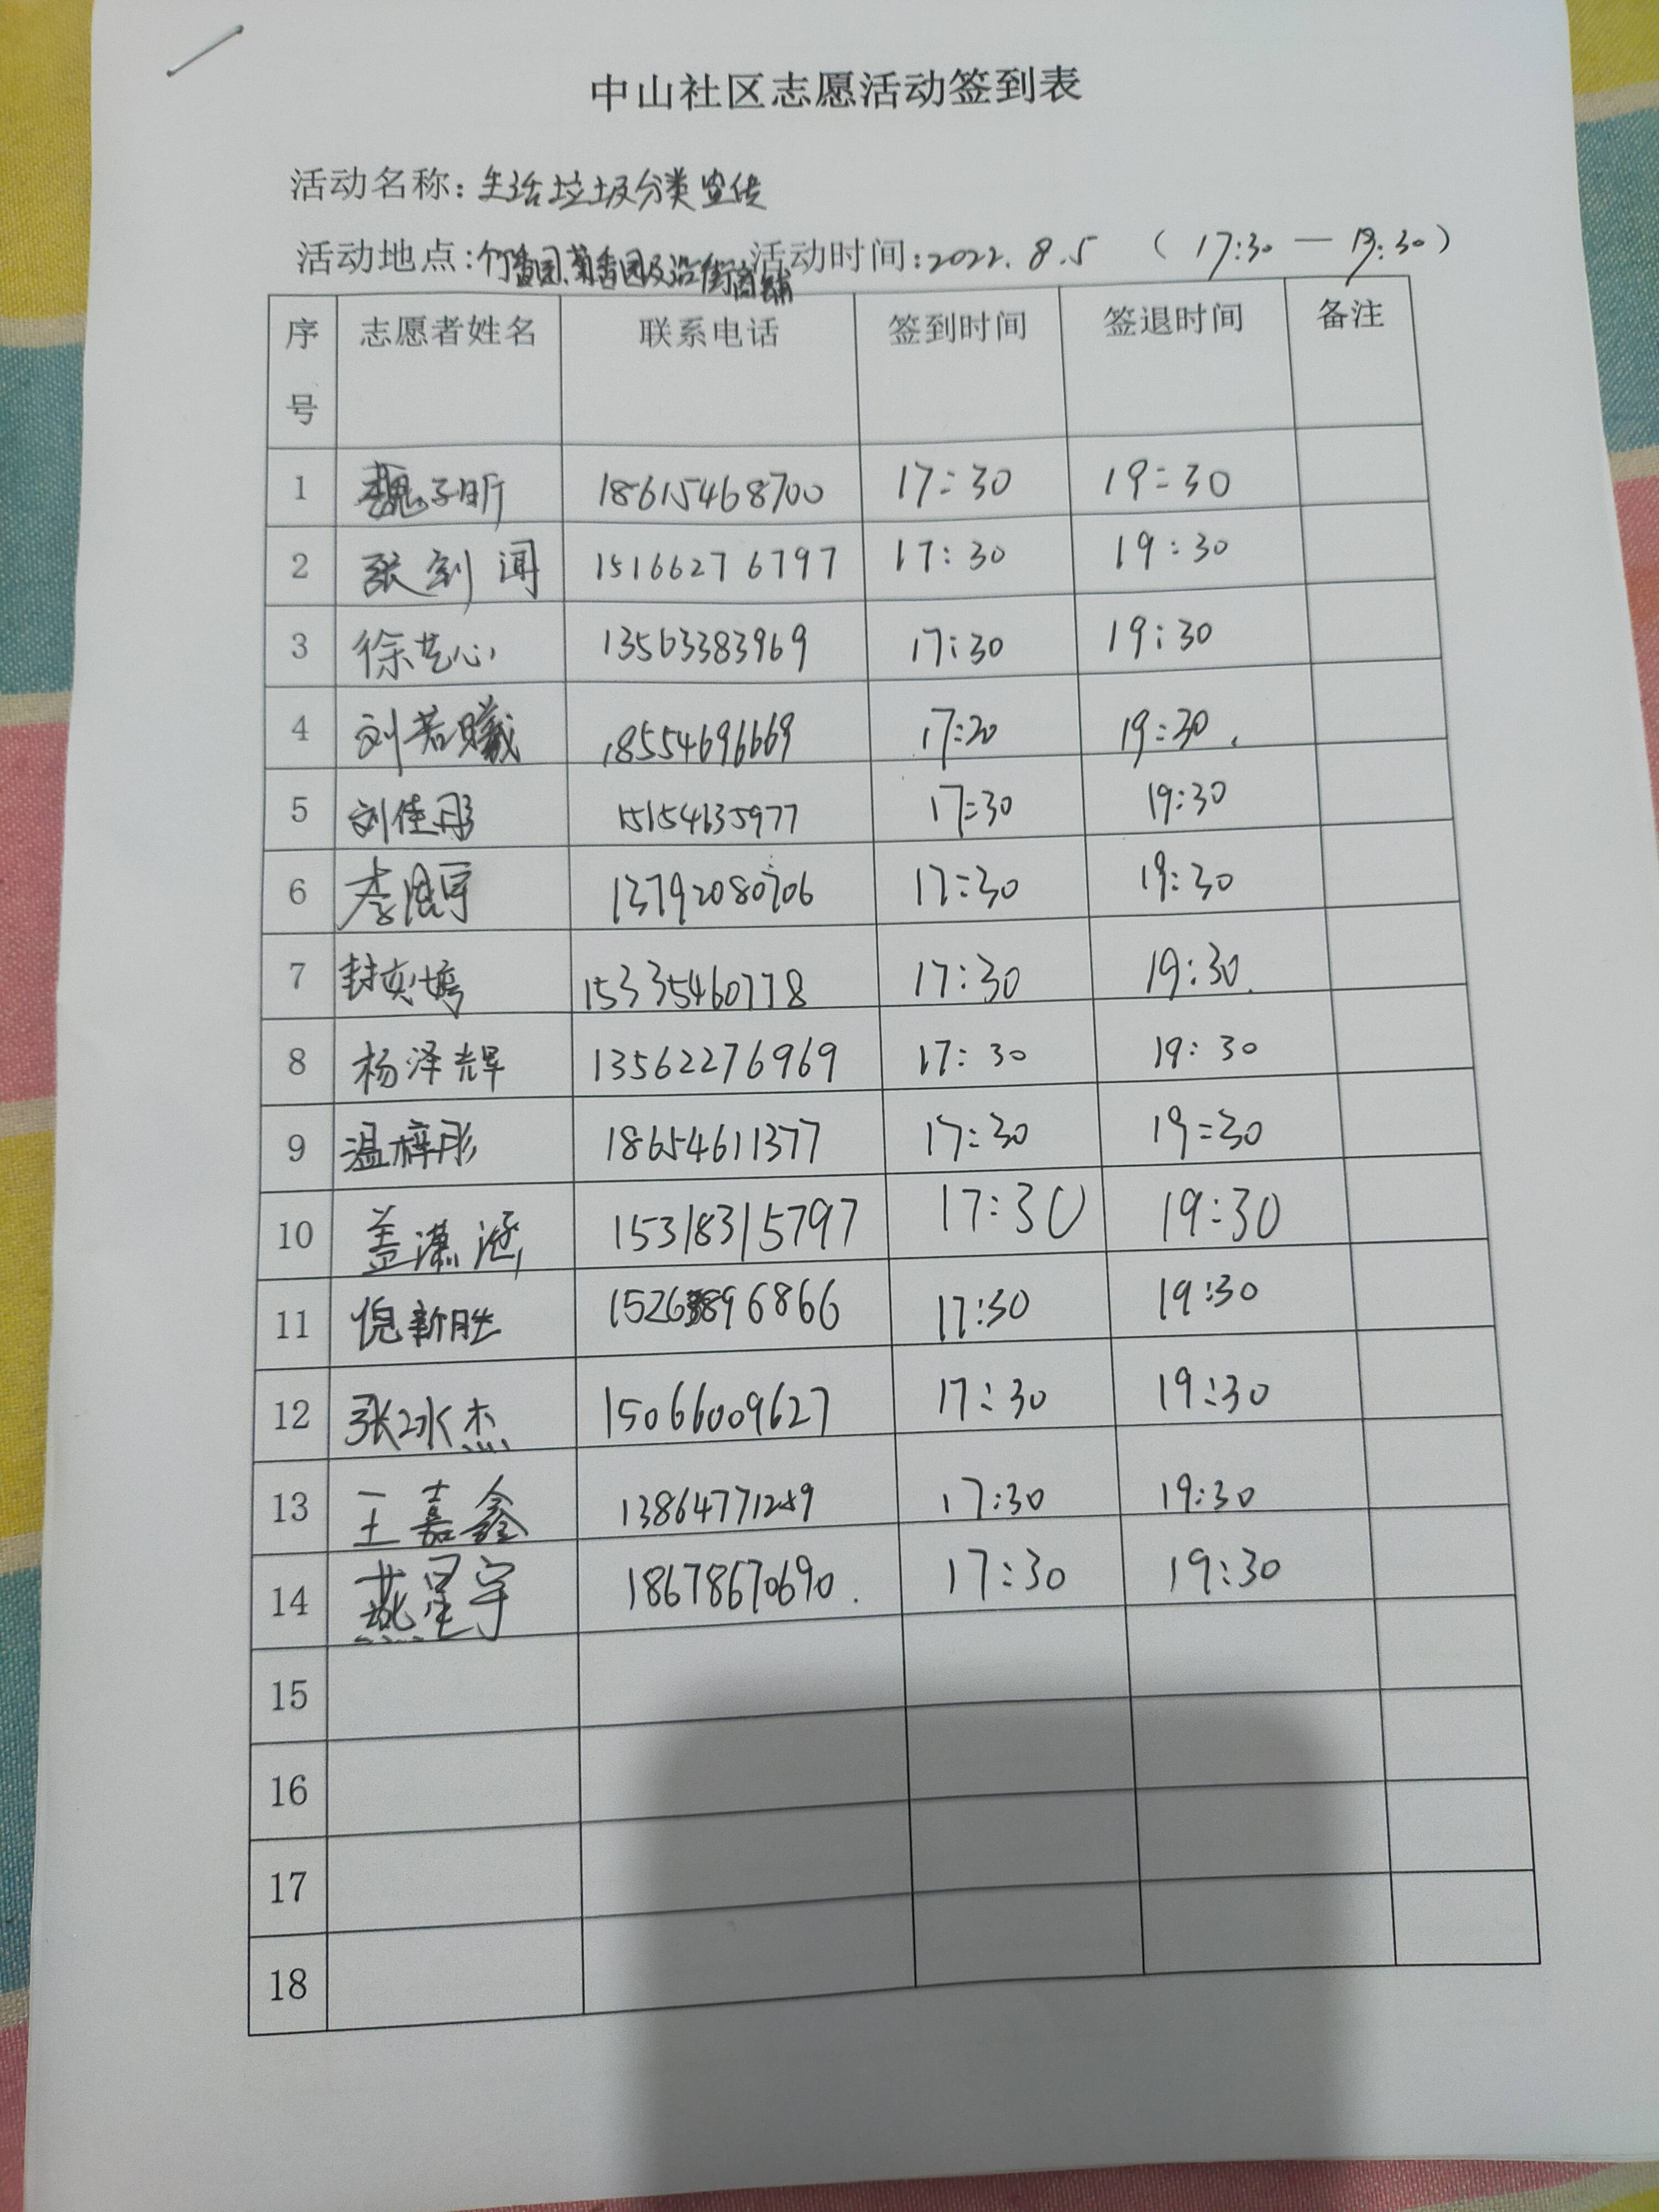 中山社区志愿活动签到表
活动名称：生活垃圾分类宣传
活动地点：竹香园、菊香园及沿街商铺 活动时间：2022.8.5 （17:30—19:30）
序号 志愿者姓名 联系电话 签到时间 签退时间 备注
1 魏子昕 18615468700 17:30 19:30
2 张剑闻 15166276797 17:30 19:30
3 徐艺心 13563383969 17:30 19:30
4 刘若曦 18554696669 17:30 19:30
5 刘佳彤 15154635977 17:30 19:30
6 李宇 13792080706 17:30 19:30
7 封 15335460778 17:30 19:30
8 杨泽辉 13562276969 17:30 19:30
9 温梓彤 18654611377 17:30 19:30
10 盖潇涵 15318315797 17:30 19:30
11 倪新胜 17:30 19:30
12 张冰杰 15066009627 17:30 19:30
13 王嘉鑫 13864771289 17:30 19:30
14 燕星宇 18678670690 17:30 19:30
15
16
17
18